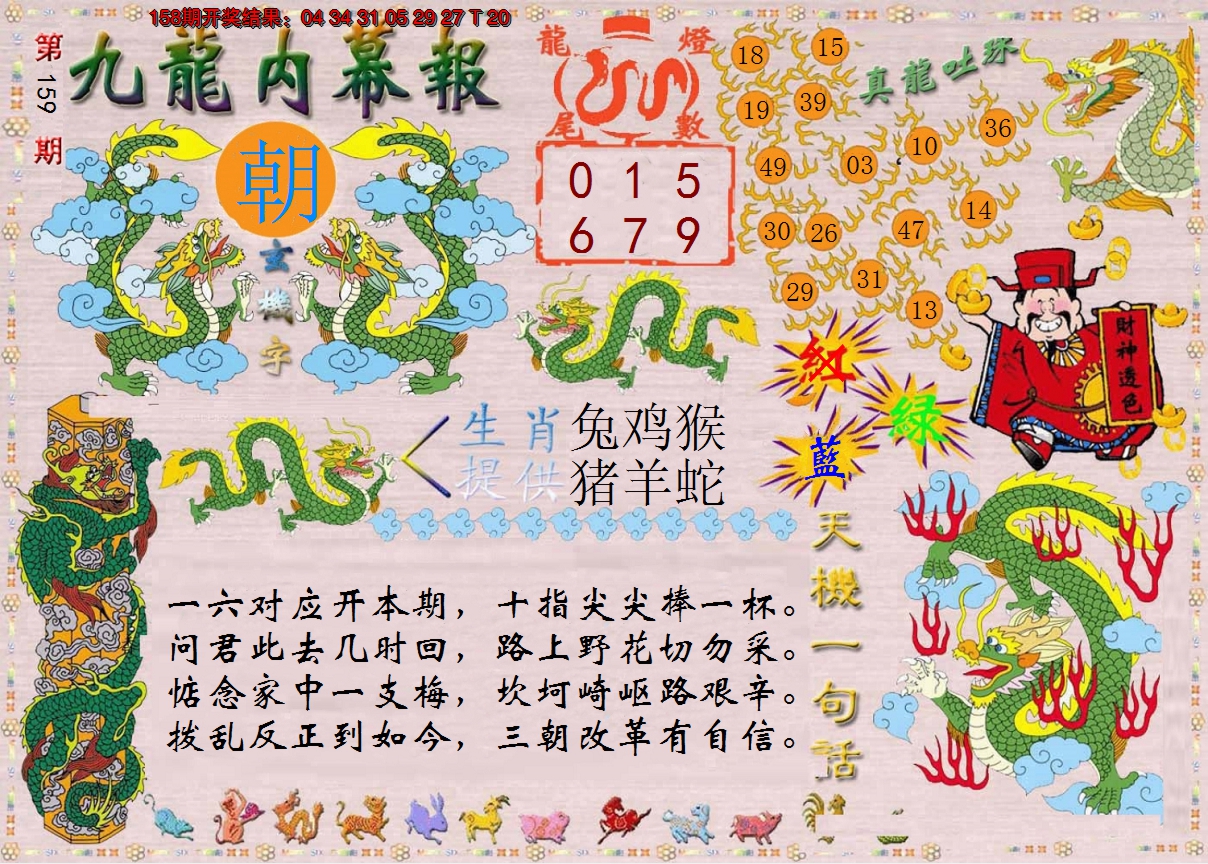 158期开奖结果：04 34 31 05 29 27 T 20
第159期
九龍内幕報
朝
玄機字
龍燈尾數
0 1 5
6 7 9
真龍吐珠
18 15
19 39
10 36
49 03
14
30 26 47
31
29 13
紅
綠
藍
財神透色
生肖 兔鸡猴
提供 猪羊蛇
天機一句話
一六对应开本期，十指尖尖捧一杯。
问君此去几时回，路上野花切勿采。
惦念家中一支梅，坎坷崎岖路艰辛。
拨乱反正到如今，三朝改革有自信。